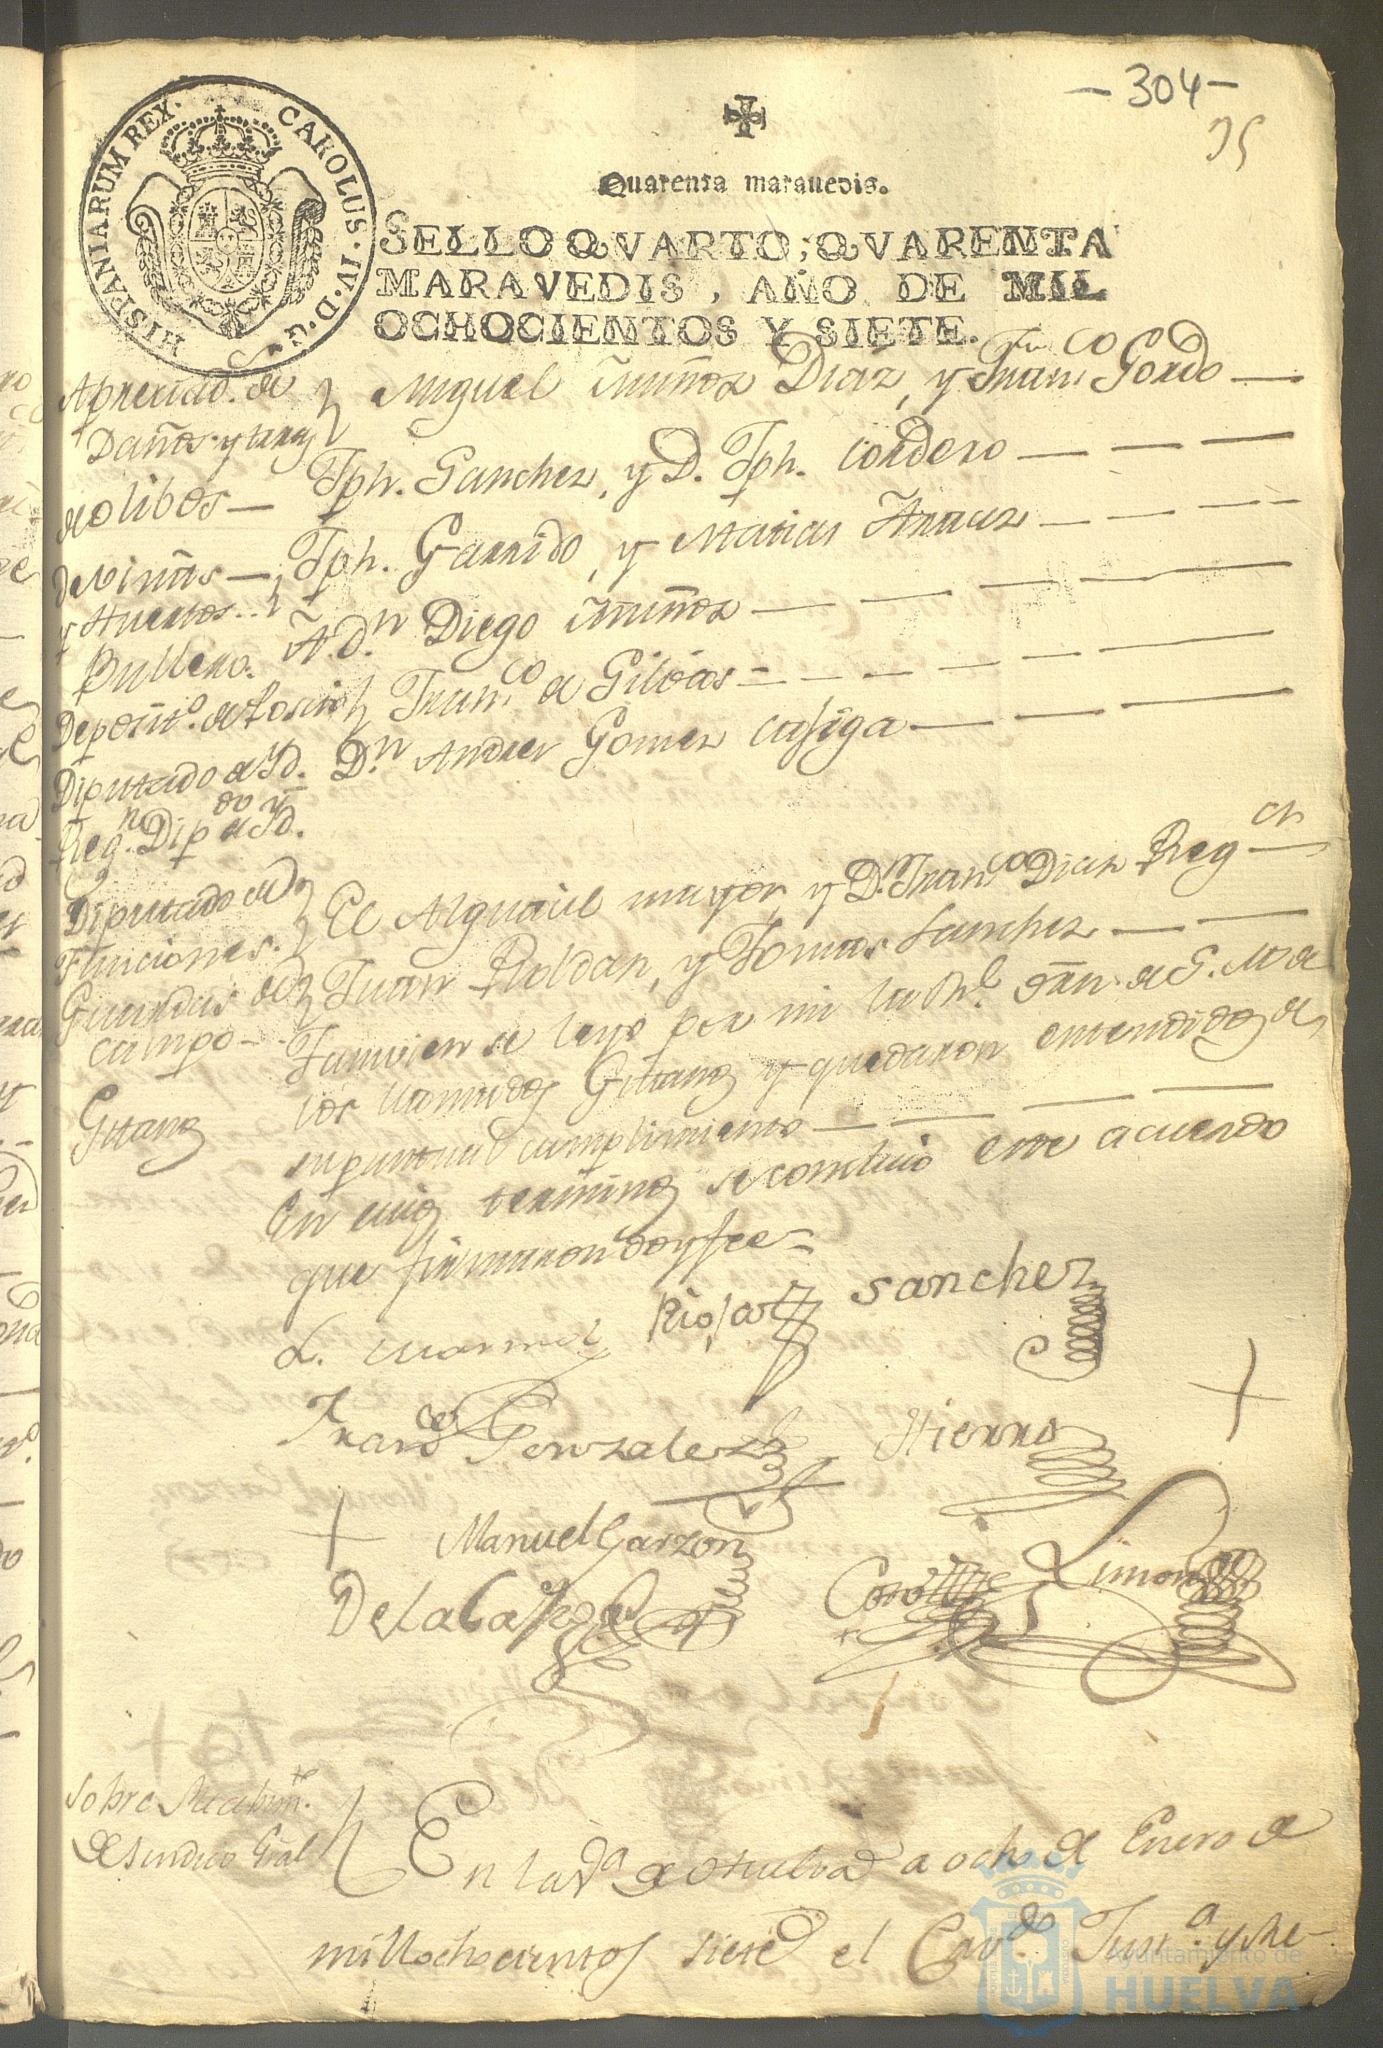 - 304 -
95
HISPANIARUM REX. CAROLUS. IV. D. G.
Quarenta maravedis.
SELLO QVARTO, QVARENTA
MARAVEDIS, AÑO DE MIL
OCHOCIENTOS Y SIETE.
Apreciad. de Miguel Muñoz Diaz, y Franco Gordo
Daños y tierras
de olibos Jph. Sanchez, y D. Jph. Cordero
de Viñas Jph. Garrido, y Matias Arauz
y Huertos
Bullero. A Dn Diego Muñoz
Deposito. de Franco de
Diputado de Yd. Dn Andres Gomez
Regn. Dipdo de Yd.
Diputado de El Alguacil mayor, y Dn Franco Diaz Regor
Funciones.
Guardas de Juan Roldan, y Tomas Sanchez
campo Tamvien se leyo por mi la Rl. de S. M. de
Gitanos los llamados Gitanos y quedaron entendidos de
su puntual cumplimiento
En cuios terminos se concluio este acuerdo
que firmaron doy fee
L. Marmol Sanchez
Franco Gonzalez Hierro
Manuel Garzon
De la Limon
Sobre
de sindico Gral En la Va de Huelva a ocho de Enero de
mill ochocientos siete el Cavdo Justa y Re-
Ayuntamiento de
HUELVA